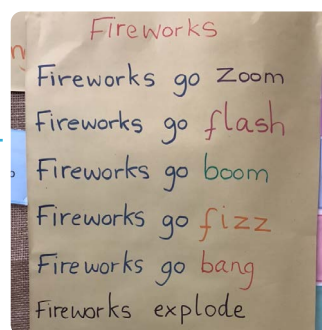 Fireworks
Fireworks go zoom
Fireworks go flash
Fireworks go boom
Fireworks go fizz
Fireworks go bang
Fireworks explode